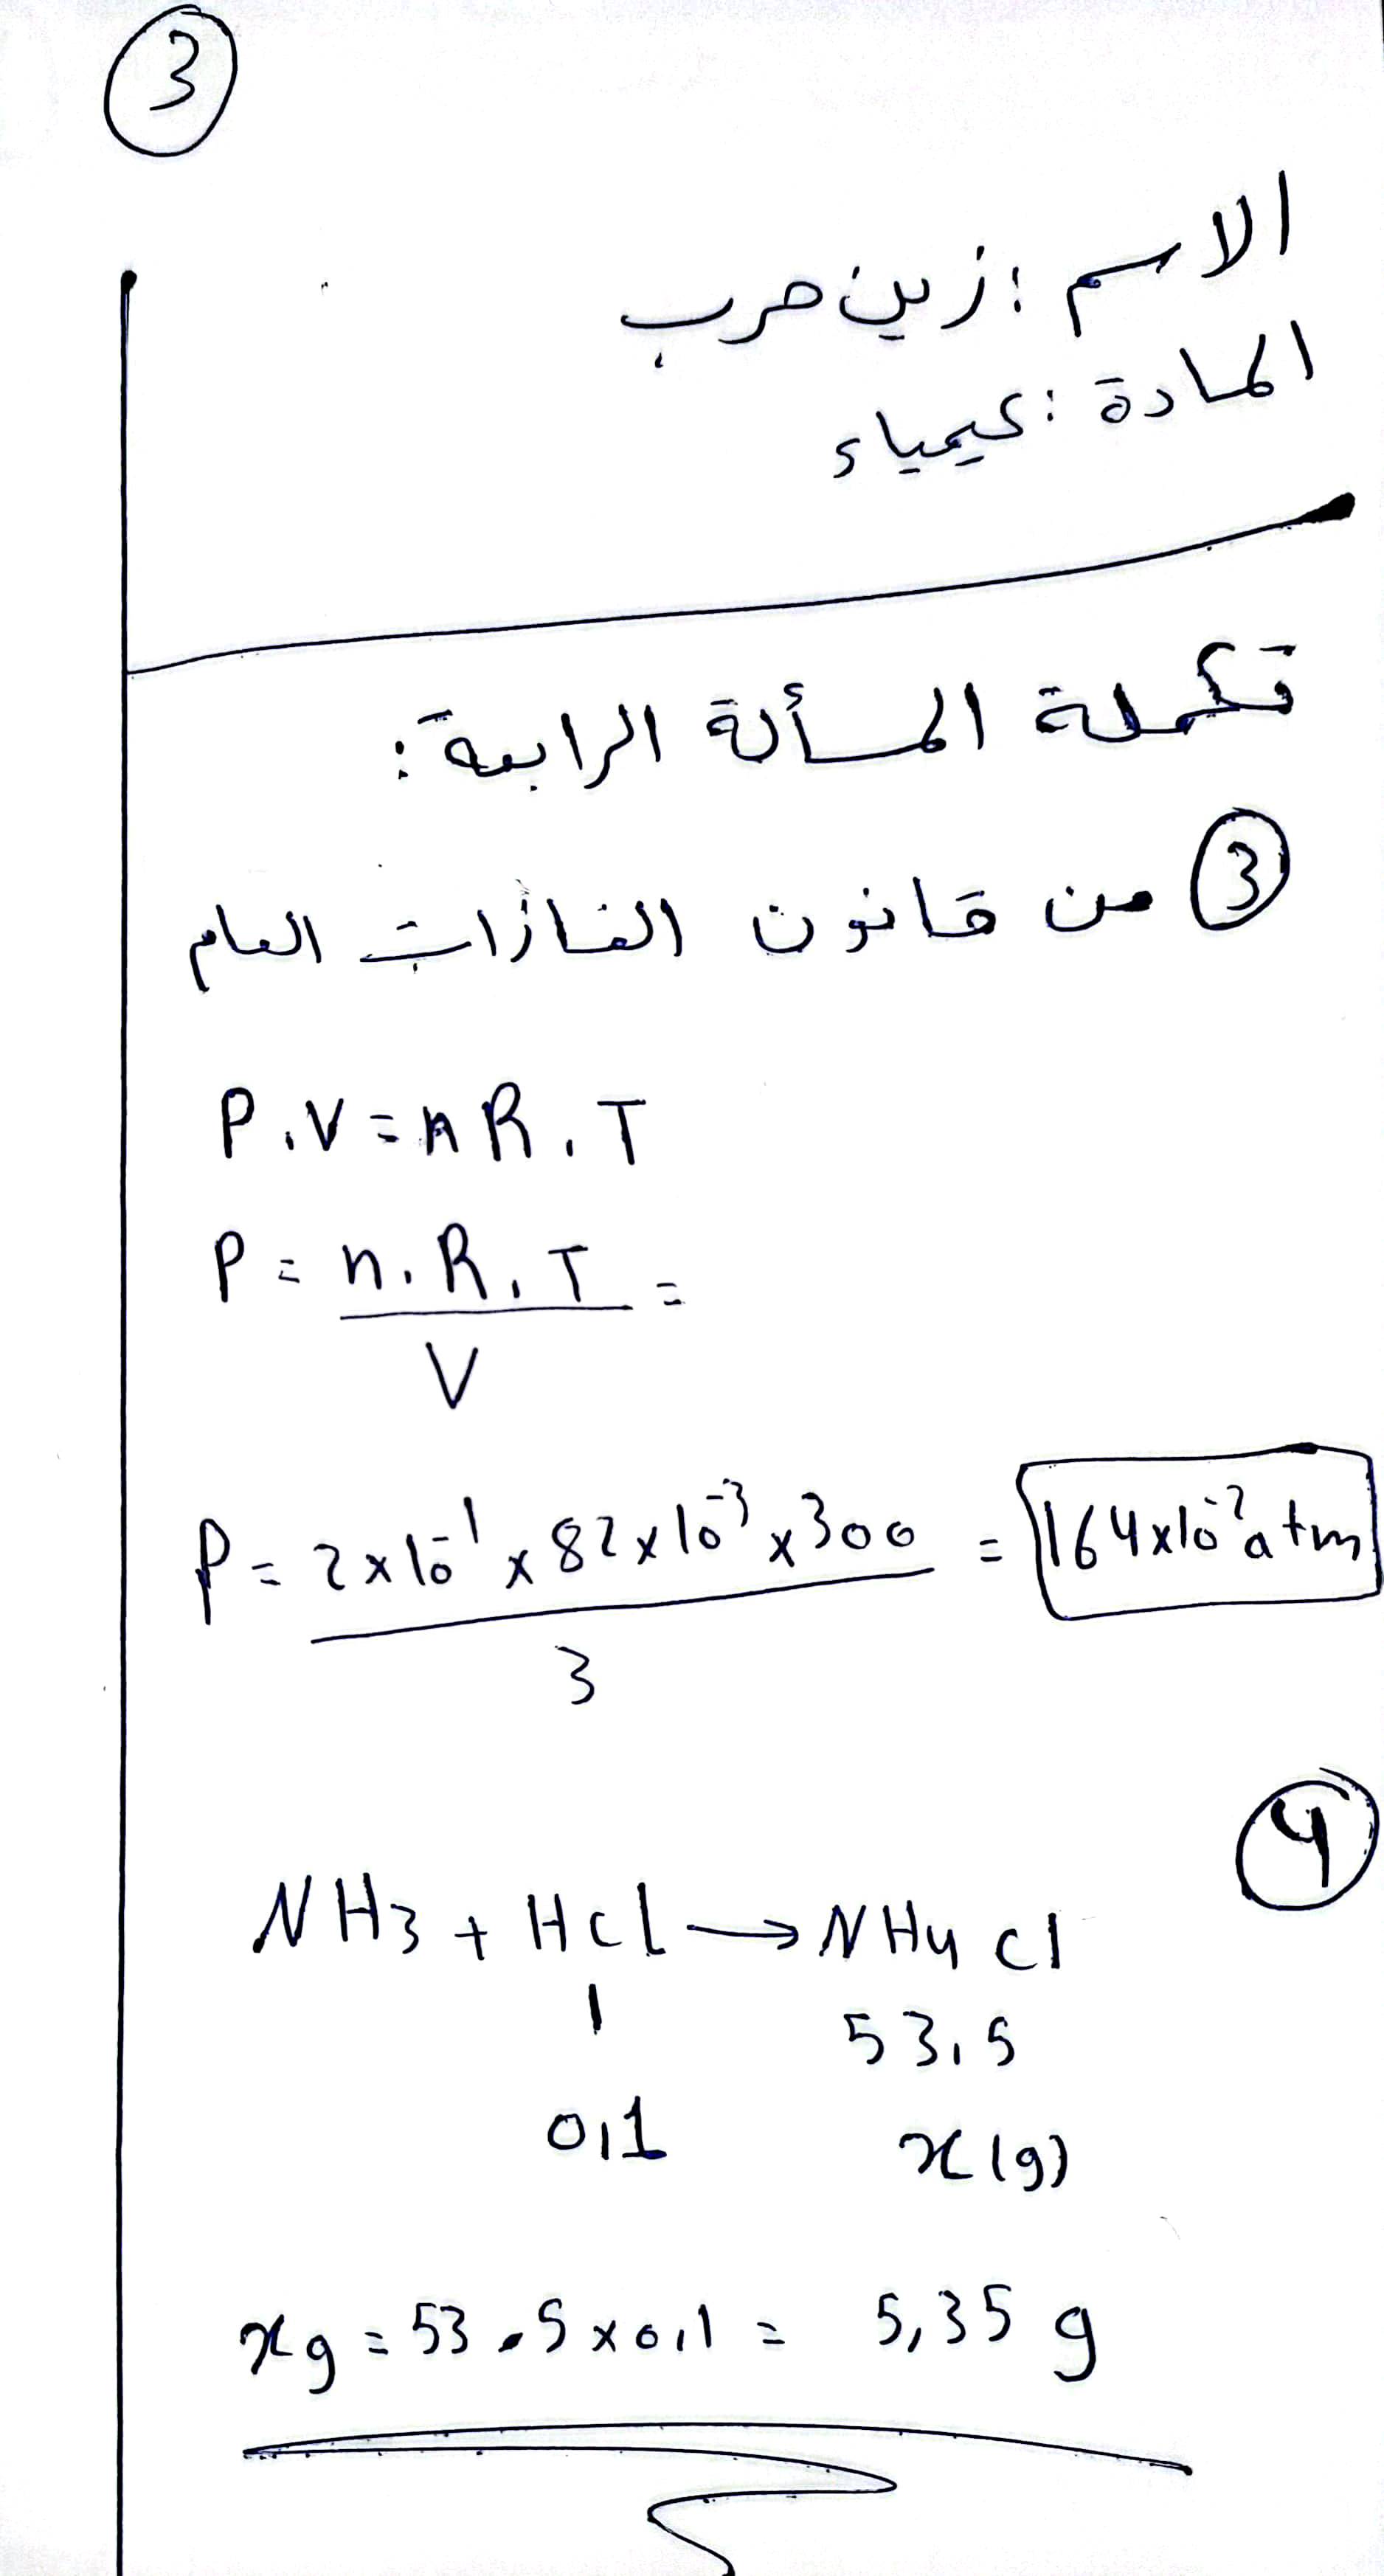 3
الاسم : زين حرب
المادة : كيمياء
تكملة المسألة الرابعة :
3 من قانون الغازات العام
P.V = n R.T
P = n.R.T =
V
P = 2x10^-1 x 82x10^-3 x 300 = 164x10^-2 atm
3
4
NH3 + HCl → NH4Cl
1 53,5
0,1 x(g)
xg = 53.5 x 0,1 = 5,35 g